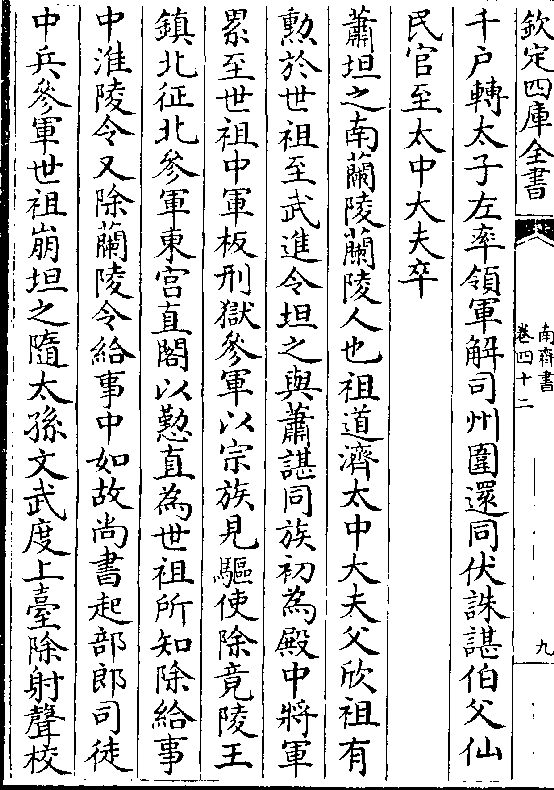 欽定四庫全書
南齊書
卷四十二
九
千户轉太子左率領軍解司州圍還同伏誅諶伯父仙
民官至太中大夫卒
蕭坦之南蘭陵蘭陵人也祖道濟太中大夫父欣祖有
勲於世祖至武進令坦之與蕭諶同族初為殿中將軍
累至世祖中軍板刑獄參軍以宗族見驅使除竟陵王
鎮北征北參軍東宫直閤以懃直為世祖所知除給事
中淮陵令又除蘭陵令給事中如故尚書起部郎司徒
中兵參軍世祖崩坦之隨太孫文武度上臺除射聲校